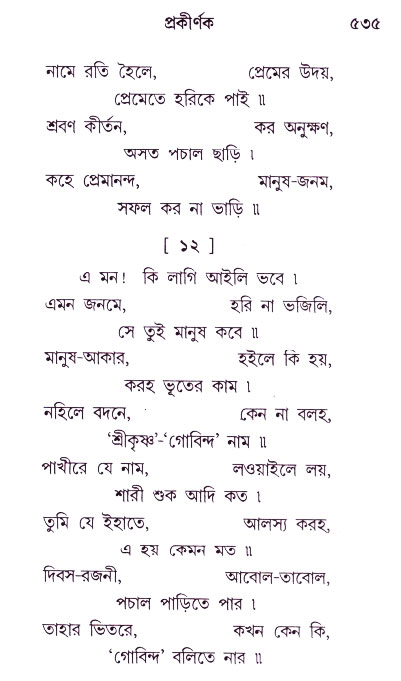 প্রকীর্ণক ৫৩৫
নামে রতি হৈলে, প্রেমের উদয়,
প্রেমেতে হরিকে পাই ॥
শ্রবণ কীর্তন, কর অনুক্ষণ,
অসত পচাল ছাড়ি ।
কহে প্রেমানন্দ, মানুষ-জনম,
সফল কর না ভাড়ি ॥
[ ১২ ]
এ মন! কি লাগি আইলি ভবে ।
এমন জনমে, হরি না ভজিলি,
সে তুই মানুষ কবে ॥
মানুষ-আকার, হইলে কি হয়,
করহ ভূতের কাম ।
নহিলে বদনে, কেন না বলহ,
‘শ্রীকৃষ্ণ’-‘গোবিন্দ’ নাম ॥
পাখীরে যে নাম, লওয়াইলে লয়,
শারী শুক আদি কত ।
তুমি যে ইহাতে, আলস্য করহ,
এ হয় কেমন মত ॥
দিবস-রজনী, আবোল-তাবোল,
পচাল পাড়িতে পার ।
তাহার ভিতরে, কখন কেন কি,
‘গোবিন্দ’ বলিতে নার ॥